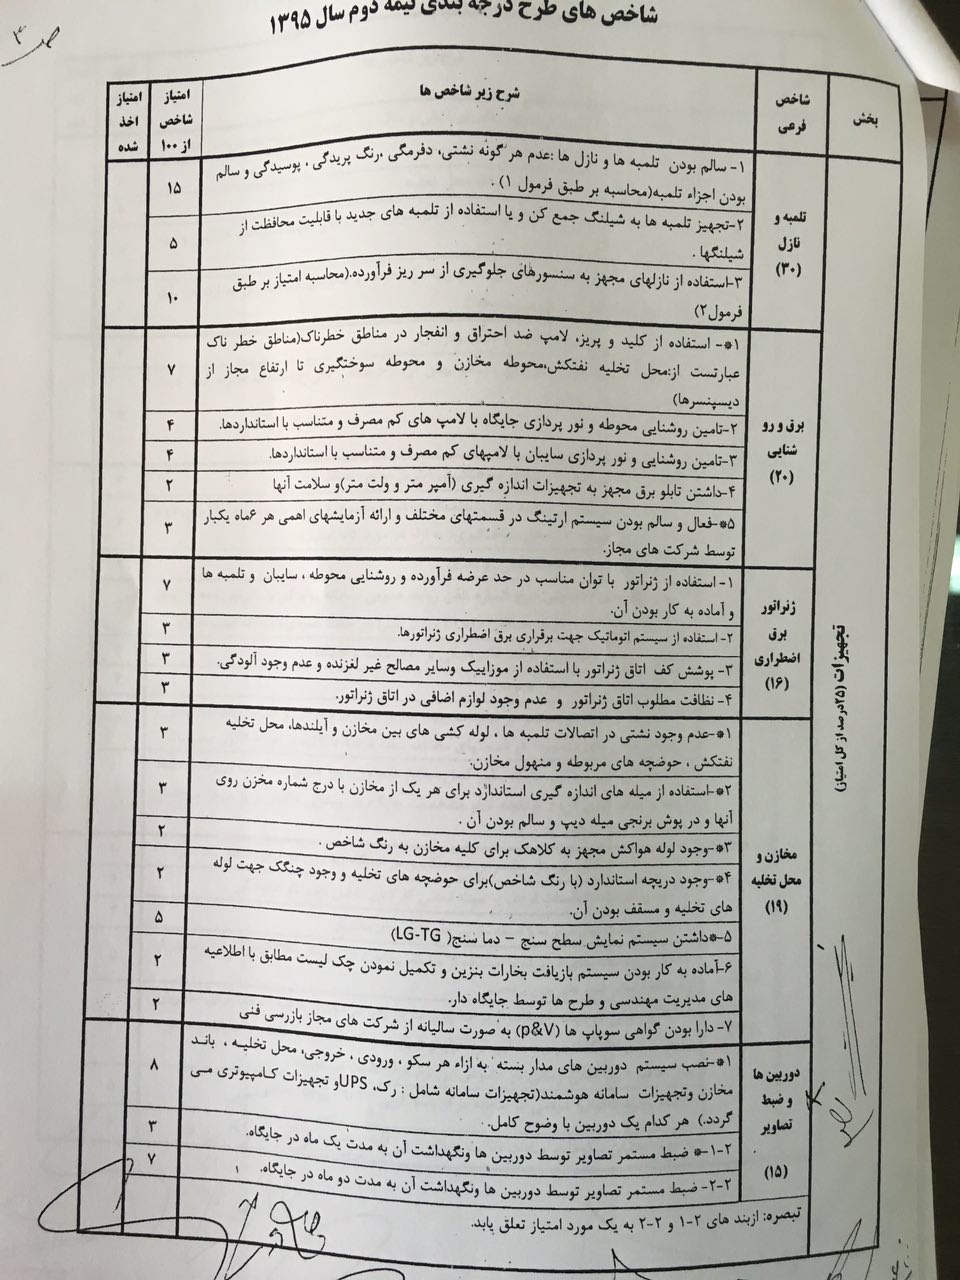 شاخص های طرح درجه بندی نیمه دوم سال ۱۳۹۵
ص ۳
بخش
شاخص فرعی
شرح زیر شاخص ها
امتیاز شاخص از ۱۰۰
امتیاز اخذ شده
تجهیزات (۲۵درصد از کل امتیاز)
تلمبه و نازل (۳۰)
۱- سالم بودن تلمبه ها و نازل ها :عدم هر گونه نشتی، دفرمگی ،رنگ پریدگی ، پوسیدگی و سالم
بودن اجزاء تلمبه(محاسبه بر طبق فرمول ۱) .
۱۵
۲-تجهیز تلمبه ها به شیلنگ جمع کن و یا استفاده از تلمبه های جدید با قابلیت محافظت از
شیلنگها .
۵
۳-استفاده از نازلهای مجهز به سنسورهای جلوگیری از سر ریز فرآورده.(محاسبه امتیاز بر طبق
فرمول۲)
۱۰
برق و رو شنایی (۲۰)
*۱- استفاده از کلید و پریز، لامپ ضد احتراق و انفجار در مناطق خطرناک(مناطق خطر ناک
عبارتست از:محل تخلیه نفتکش،محوطه مخازن و محوطه سوختگیری تا ارتفاع مجاز از
دیسپنسرها)
۷
۲-تامین روشنایی محوطه و نور پردازی جایگاه با لامپ های کم مصرف و متناسب با استانداردها.
۴
۳-تامین روشنایی و نور پردازی سایبان با لامپهای کم مصرف و متناسب با استانداردها.
۴
۴-داشتن تابلو برق مجهز به تجهیزات اندازه گیری (آمپر متر و ولت متر)و سلامت آنها
۲
*۵-فعال و سالم بودن سیستم ارتینگ در قسمتهای مختلف و ارائه آزمایشهای اهمی هر ۶ماه یکبار
توسط شرکت های مجاز.
۳
ژنراتور برق اضطراری (۱۶)
۱- استفاده از ژنراتور با توان مناسب در حد عرضه فرآورده و روشنایی محوطه ، سایبان و تلمبه ها
و آماده به کار بودن آن.
۷
۲- استفاده از سیستم اتوماتیک جهت برقراری برق اضطراری ژنراتورها.
۳
۳- پوشش کف اتاق ژنراتور با استفاده از موزاییک وسایر مصالح غیر لغزنده و عدم وجود آلودگی.
۳
۴- نظافت مطلوب اتاق ژنراتور و عدم وجود لوازم اضافی در اتاق ژنراتور.
۳
مخازن و محل تخلیه (۱۹)
*۱-عدم وجود نشتی در اتصالات تلمبه ها ، لوله کشی های بین مخازن و آیلندها، محل تخلیه
نفتکش ، حوضچه های مربوطه و منهول مخازن.
۳
*۲-استفاده از میله های اندازه گیری استاندارد برای هر یک از مخازن با درج شماره مخزن روی
آنها و در پوش برنجی میله دیپ و سالم بودن آن .
۳
*۳-وجود لوله هواکش مجهز به کلاهک برای کلیه مخازن به رنگ شاخص .
۲
*۴-وجود دریچه استاندارد (با رنگ شاخص)برای حوضچه های تخلیه و وجود چنگک جهت لوله
های تخلیه و مسقف بودن آن.
۲
۵-*داشتن سیستم نمایش سطح سنج – دما سنج( LG-TG)
۵
۶-آماده به کار بودن سیستم بازیافت بخارات بنزین و تکمیل نمودن چک لیست مطابق با اطلاعیه
های مدیریت مهندسی و طرح ها توسط جایگاه دار.
۲
۷- دارا بودن گواهی سوپاپ ها (p&V) به صورت سالیانه از شرکت های مجاز بازرسی فنی
۲
دوربین ها و ضبط تصاویر (۱۵)
*۱-نصب سیستم دوربین های مدار بسته به ازاء هر سکو ، ورودی ، خروجی، محل تخلیه ، باند
مخازن وتجهیزات سامانه هوشمند(تجهیزات سامانه شامل : رک، UPSو تجهیزات کامپیوتری می
گردد.) هر کدام یک دوربین با وضوح کامل.
۸
۱-۲-* ضبط مستمر تصاویر توسط دوربین ها ونگهداشت آن به مدت یک ماه در جایگاه.
۳
۲-۲- ضبط مستمر تصاویر توسط دوربین ها ونگهداشت آن به مدت دو ماه در جایگاه.
۷
تبصره: ازبند های ۲-۱ و ۲-۲ به یک مورد امتیاز تعلق یابد.